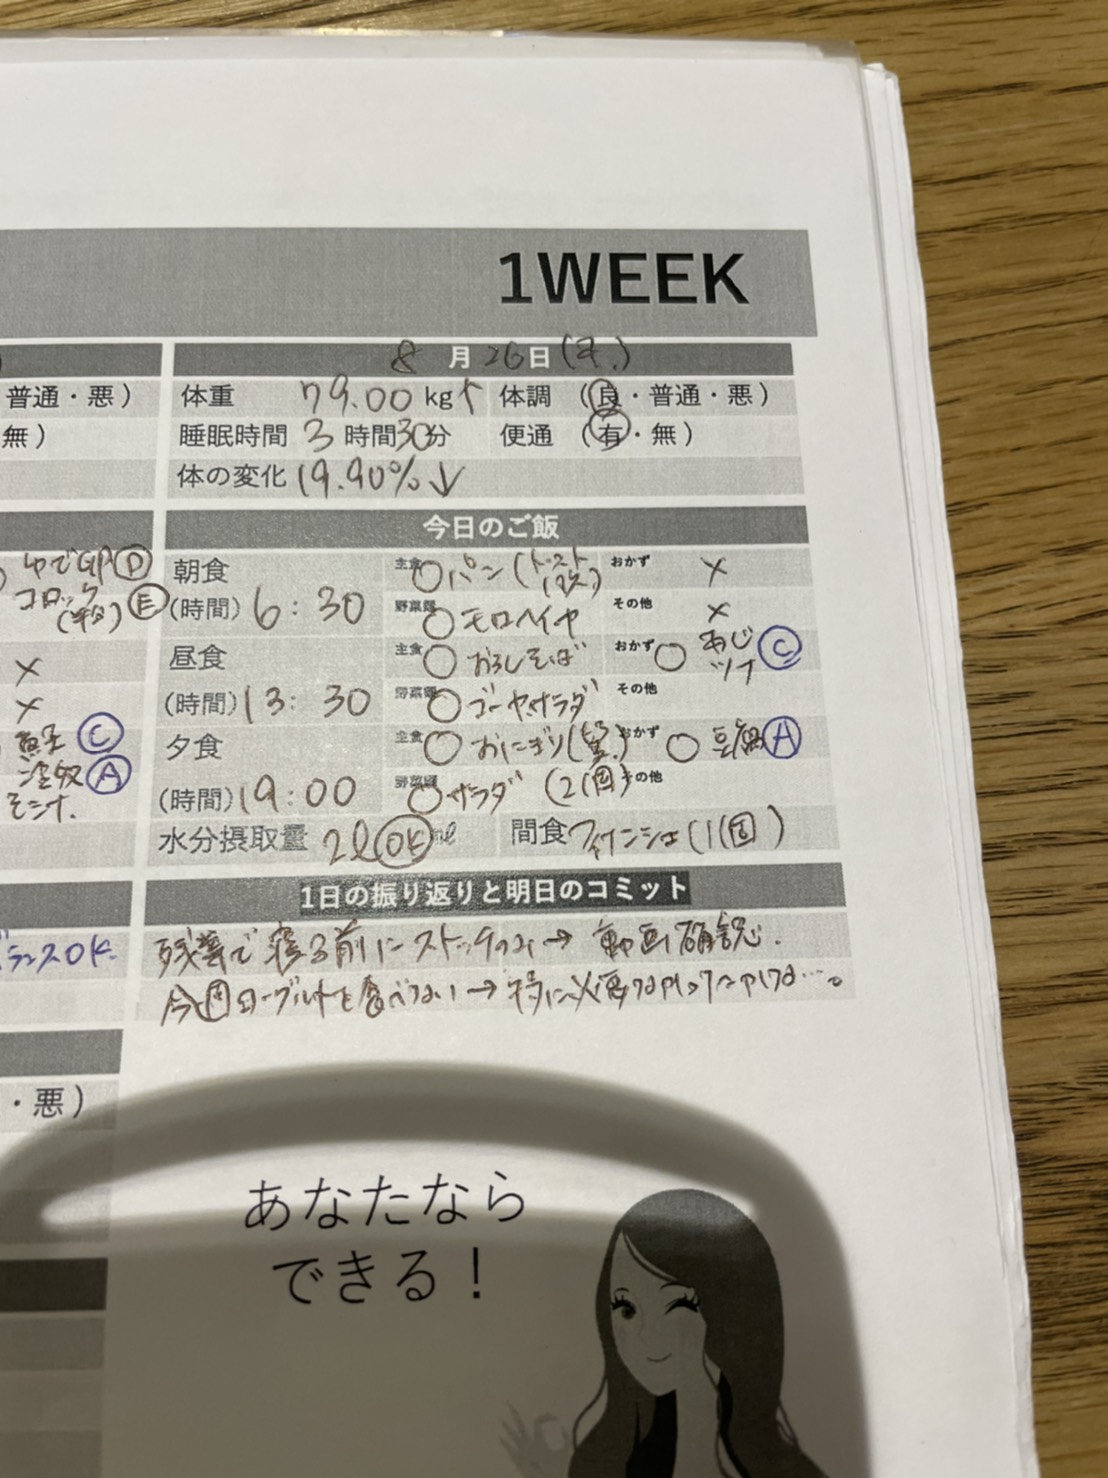 1WEEK
普通・悪)
無)
ゆでGP Ⓓ
コロッケ
(半分) Ⓔ
×
×
Ⓒ
Ⓐ
ランスOK
・悪)
8月26日(木)
体重 79.00kg↑ 体調 (良・普通・悪)
睡眠時間 3時間30分 便通 (有・無)
体の変化 19.90%↓
今日のご飯
朝食 主食 ○パン(トースト おかず ×
(時間) 6:30 野菜類 ○モロヘイヤ その他 ×
昼食 主食 ○おろしそば おかず ○ あじ ツナ Ⓒ
(時間) 13:30 野菜類 ○ゴーヤサラダ その他
夕食 主食 ○おにぎり おかず ○豆腐 Ⓐ
(時間) 19:00 野菜類 ○サラダ (2個) その他
水分摂取量 2ℓ OK ml 間食 フィナンシェ(1個)
1日の振り返りと明日のコミット
残業で寝る前にストレッチのみ→動画確認.
今週ヨーグルトを食べない→特に
あなたなら
できる!